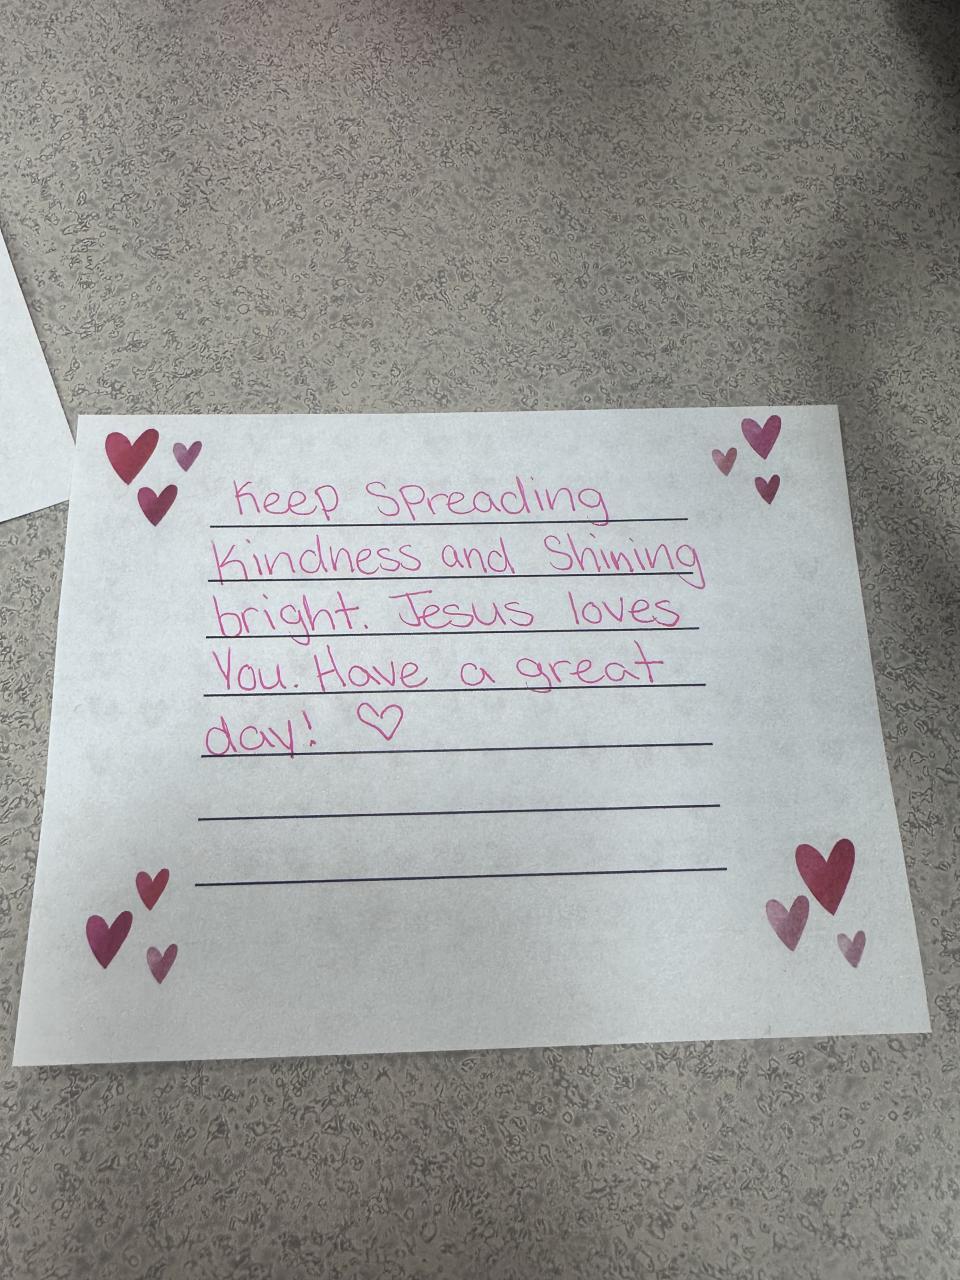 Keep Spreading
Kindness and Shining
bright. Jesus loves
You. Have a great
day! ♡